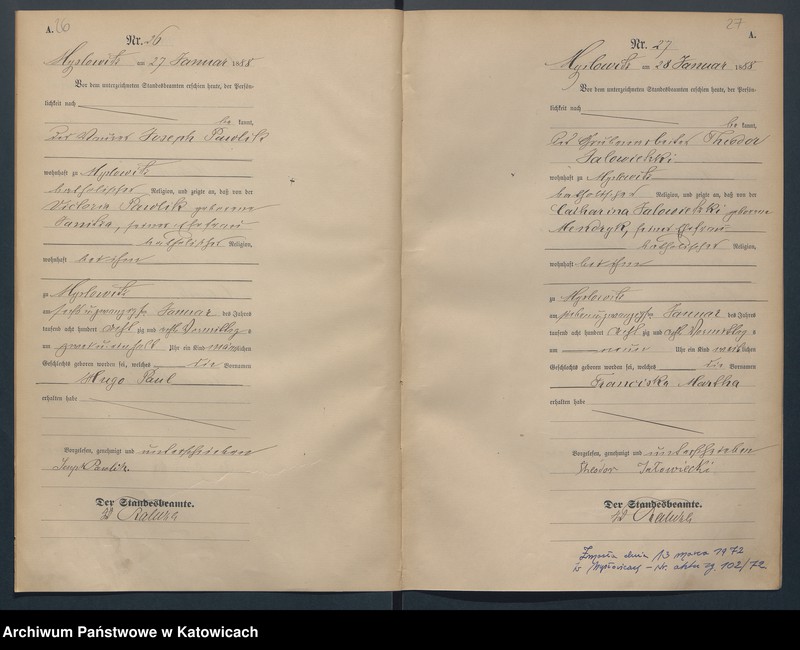 A. 26
Nr. 26
Myslowitz am 27 Januar 1888
Vor dem unterzeichneten Standesbeamten erschien heute, der Persön-
lichkeit nach
be kannt,
Joseph Pawlik
wohnhaft zu Myslowitz
katholischer Religion, und zeigte an, daß von der
Victoria Pawlik geborene
seiner Ehefrau
katholischer Religion,
wohnhaft bei ihm
zu Myslowitz
am sechsundzwanzigsten Januar des Jahres
tausend acht hundert acht zig und acht Vormittags
um Uhr ein Kind männlichen
Geschlechts geboren worden sei, welches die Vornamen
Hugo Paul
erhalten habe
Vorgelesen, genehmigt und unterschrieben
Joseph Pawlik.
Der Standesbeamte.
Kaluza
27
A.
Nr. 27
Myslowitz am 28 Januar 1888
Vor dem unterzeichneten Standesbeamten erschien heute, der Persön-
lichkeit nach
be kannt,
der Grubenarbeiter Theodor
Jalowiecki
wohnhaft zu Myslowitz
katholischer Religion, und zeigte an, daß von der
Catharina Jalowiecki geborene
Mendryk, seiner Ehefrau
katholischer Religion,
wohnhaft bei ihm
zu Myslowitz
am siebenundzwanzigsten Januar des Jahres
tausend acht hundert acht zig und acht Vormittags
um neun Uhr ein Kind weiblichen
Geschlechts geboren worden sei, welches die Vornamen
Franciska Martha
erhalten habe
Vorgelesen, genehmigt und unterschrieben
Theodor Jalowiecki
Der Standesbeamte.
Kaluza
Zmarła dnia 13 marca 1972
w Mysłowicach – Nr. aktu zg. 102/72
Archiwum Państwowe w Katowicach